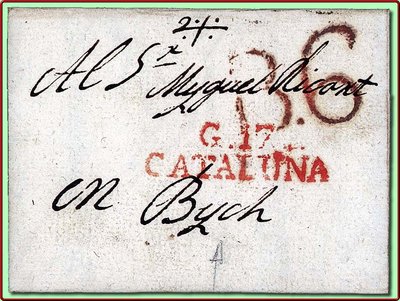 Al Sr Myguel Ricart
36
G. 17..
CATALUÑA
en Bych